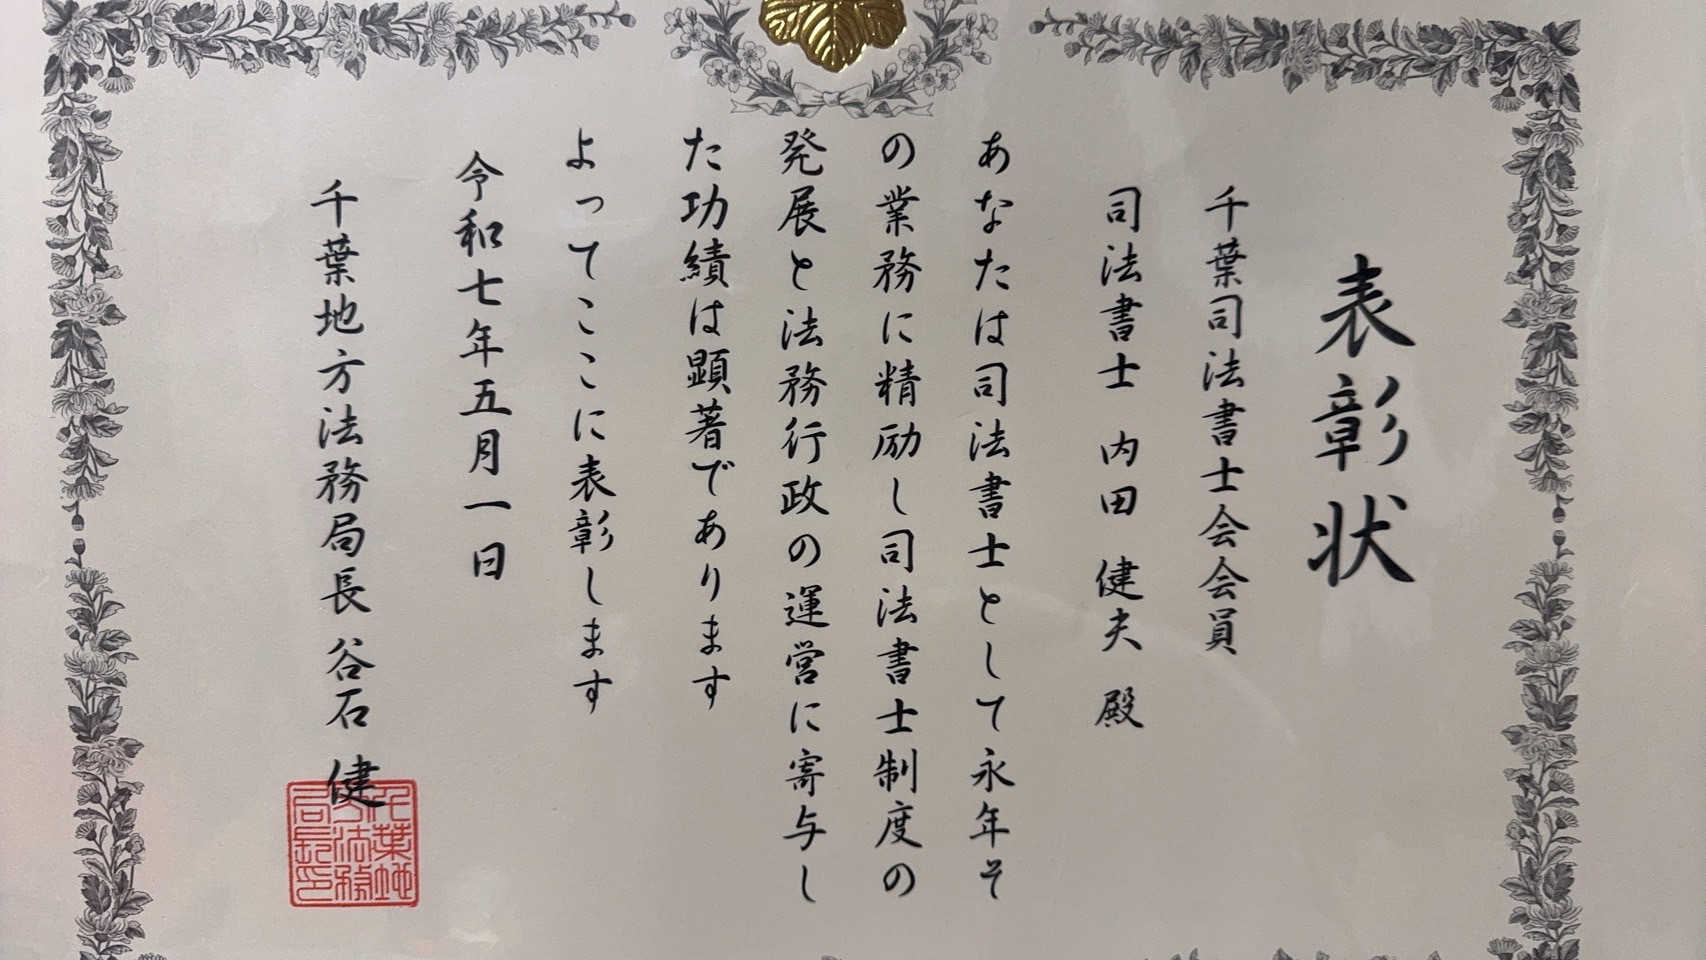 表彰状
千葉司法書士会会員
司法書士 内田 健夫 殿
あなたは司法書士として永年そ
の業務に精励し司法書士制度の
発展と法務行政の運営に寄与し
た功績は顕著であります
よってここに表彰します
令和七年五月一日
千葉地方法務局長 谷石 健
千葉地
方法務
局長印